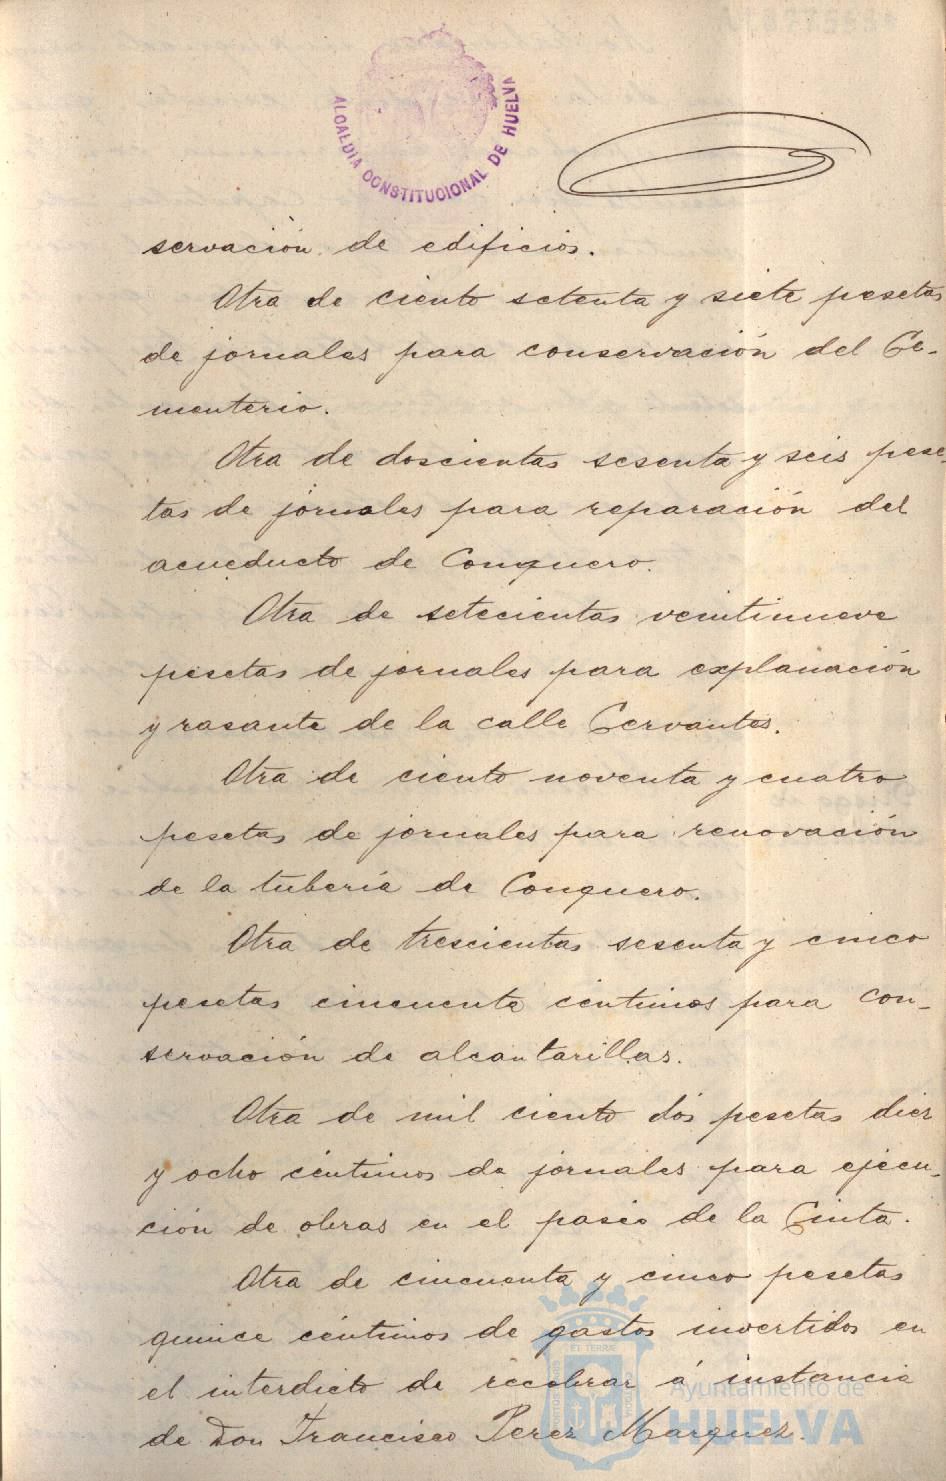 ALCALDIA CONSTITUCIONAL DE HUELVA
servación de edificios.
Otra de ciento setenta y siete pesetas
de jornales para conservación del Ce-
menterio.
Otra de doscientas sesenta y seis pese-
tas de jornales para reparación del
acueducto de Conquero.
Otra de setecientas veintinueve
pesetas de jornales para explanación
y rasante de la calle Cervantes.
Otra de ciento noventa y cuatro
pesetas de jornales para renovación
de la tubería de Conquero.
Otra de trescientas sesenta y cinco
pesetas cincuenta céntimos para con-
servación de alcantarillas.
Otra de mil ciento dós pesetas diez
y ocho céntimos de jornales para ejecu-
ción de obras en el paseo de la Cinta.
Otra de cincuenta y cinco pesetas
quince céntimos de gastos invertidos en
el interdicto de recobrar á instancia
de Don Francisco Perez Marquez.
Ayuntamiento de
HUELVA